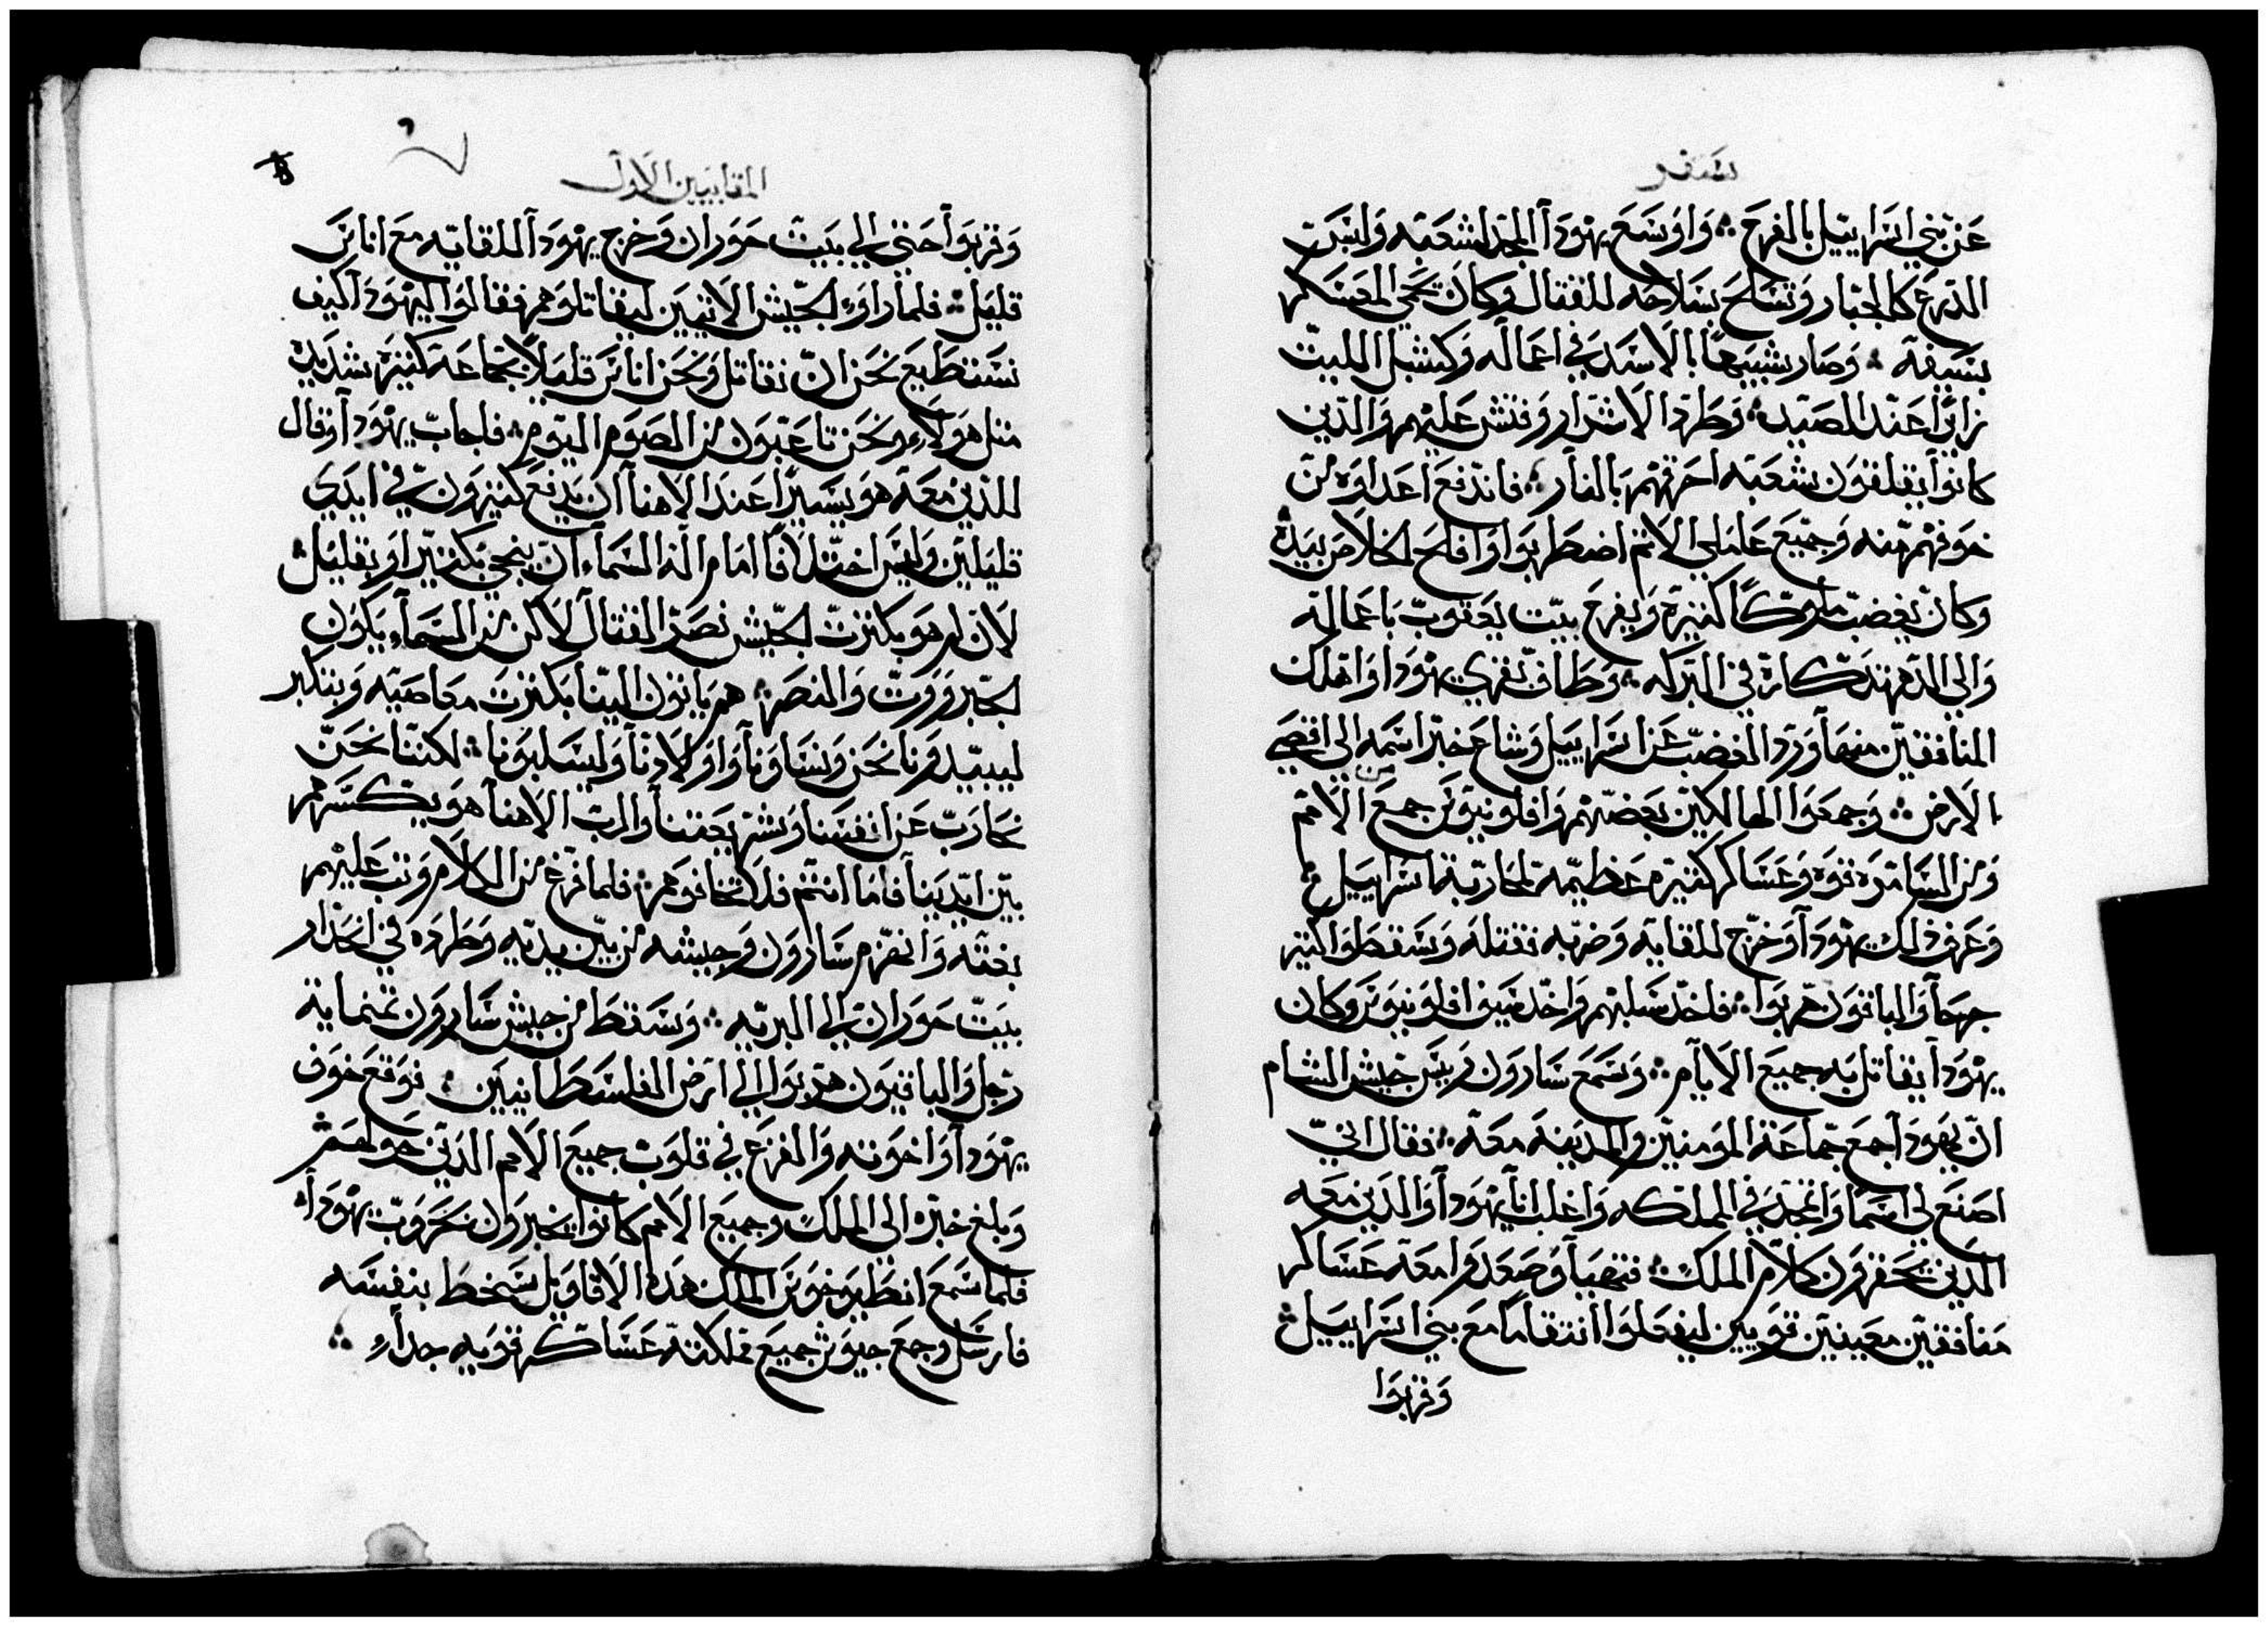 سفر
عن بني اسراييل بالفرح ؞ واوسع يهودا المجد لشعبه ولبس
الدرع كالجبار وتسلح بسلاحه للقتال وكان يحمي المعسكر
بسيفه ؞ وصار شبيهًا بالاسد في اعماله وكشبل الليت
زايرًا عند الصيد ؞ وطرد الاشرار وفتش عليهم والدين
كانوا يقلقون شعبه احرقهم بالنار ؞ فاندفع اعداوه من
خوفهم منه وجميع عاملي الاتم اضطربوا وافلح الخلاص بيده
وكان يغضب ملوكًا كتيرة ويفرح بيت يعقوب باعماله
والي الدهر تدكاره في البركه ؞ وطاف بقري يهودا واهلك
المنافقين منها ورد الغضب عن اسراييل وشاع خبر اسمه الي اقصي
الارض ؞ وجمعوا الهالكين بعضهم وافلونيوس جمع الامم
ومن السامره قوه وعساكر كتيره عظيمه لمحاربة اسراييل ؞
وعرف دلك يهودا وخرج للقايه وضربه فقتله وسقطوا كتير
جرحا والباقون هربوا ؞ فاخد سلبهم واخد سيف افلونيوس وكان
يهودا يقاتل به جميع الايام ؞ وسمع سارون ريس جيش الشام
ان يهودا جمع جماعة المومنين والمدينه معه ؞ فقال اني
اصنع لي اسما واتمجد في المملكه واغلب انا يهودا والدين معه
الدين يحقرون كلام الملك ؞ فتهيا وصعدوا معه عساكر
منافقين معينين قويين ليفعلوا انتقاما مع بني اسراييل ؞
وقربوا
المقابيين الاول
وقربوا حتي الي بيت حوران وخرج يهودا للقايه مع اناس
قليل ؞ فلما راوا الجيش الاتيين ليقاتلوهم فقالوا ليهودا كيف
نستطيع نحن ان نقاتل ونحن اناس قليلا لجماعة كتيره شديده
متل هولاء ونحن تاعبون من الصوم اليوم ؞ فاجاب يهودا وقال
للذين معه هو يسيرًا عند الاهنا ان يدفع كتيرون في ايدي
قليلين وليس اختلافًا امام اله السماء ان ينجي بكتير او بقليل ؞
لان لم هو بكترت الجيش نصر القتال لاكن من السماء يكون
الجبروت والنصر ؞ هم ياتون الينا بكترت معاصيه وبتكبر
ليبيدونا نحن ونساونا واولادنا وليسلبونا ؞ لكننا نحن
نحارب عن انفسنا وشريعتنا والرب الاهنا هو يكسرهم
بين ايدينا فاما انتم فلا تخافوهم ؞ فلما فرغ من الكلام وتب عليهم
بغته وانهزم سارون وجيشه من بين يديه وطرده في انحدار
بيت حوران الي البريه ؞ وسقط من جيش سارون تمنماية
رجل والباقيون هربوا الي ارض الفلسطانيين ؞ فوقع خوف
يهودا واخوته والفزع في قلوب جميع الامم الدين حولهم ؞
وبلغ خبره الي الملك وجميع الامم كانوا يخبرون بحروب يهودا ؞
فلما سمع انطيوخوس الملك هده الاقاويل سخط بنفسه
فارسل وجمع جيوش جميع مملكته عساكر قويه جدا ؞